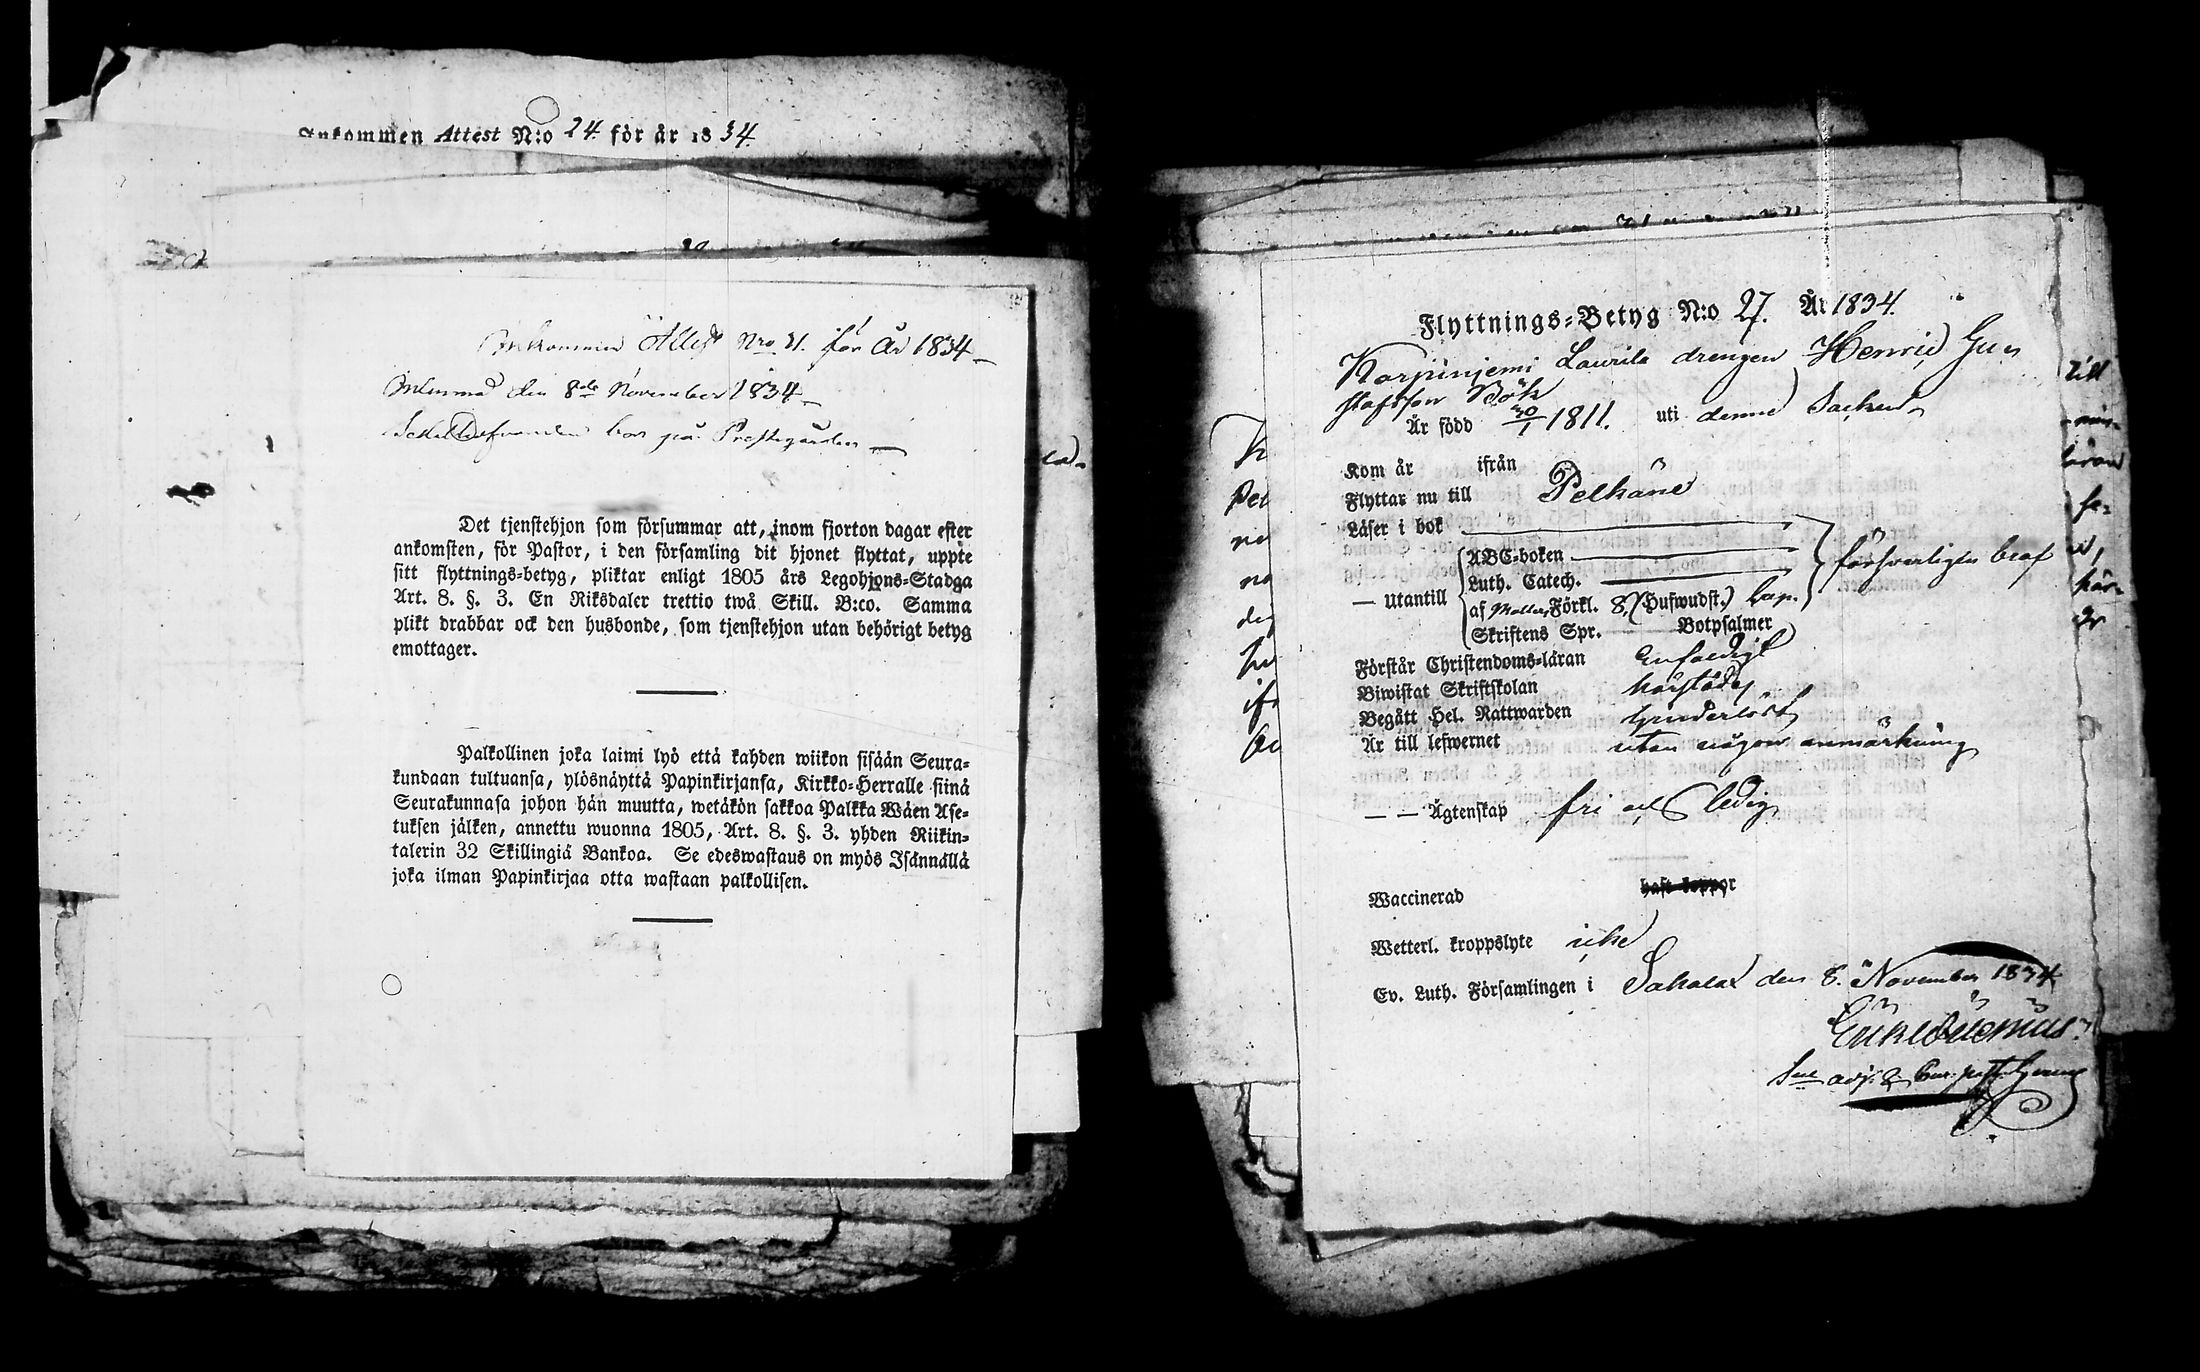 Inkommen Attest N:o 24. för år 1834.
Inkommen Attest Nro 21. för År 1834
Inlemnad den 8de November 1834
bor på Prestegården
Det tjenstehjon som försummar att, inom fjorton dagar efter
ankomsten, för Pastor, i den församling dit hjonet flyttat, uppte
sitt flyttnings-betyg, pliktar enligt 1805 års Legohjons-Stadga
Art. 8. §. 3. En Riksdaler trettio twå Skill. B:co. Samma
plikt drabbar ock den husbonde, som tjenstehjon utan behörigt betyg
emottager.
Palkollinen joka laimi lyö että kahden wiikon sisään Seura-
kundaan tultuansa, ylösnäyttä Papinkirjansa, Kirkko-Herralle siinä
Seurakunnasa johon hän muutta, wetäkön sakkoa Palkka Wäen Ase-
tuksen jälken, annettu wuonna 1805, Art. 8. §. 3. yhden Riikin-
talerin 32 Skillingiä Bankoa. Se edeswastaus on myös Isännällä
joka ilman Papinkirjaa otta wastaan palkollisen.
Flyttnings-Betyg N:o 27. År 1834.
Karpinjemi Laurila drengen Henric Gu
stafsson Bök
Är född 30/1 1811. uti denne Sacken
Kom år ifrån
Flyttar nu till Pelkäne
Läser i bok
ABC-boken
Luth. Catech.
— utantill af Möllers Förkl. 8. (Hufwudst.) Cap. försvarligen braf
Skriftens Spr. Botpsalmer
Förstår Christendoms-läran Enfaldigt
Biwistat Skriftskolan härstädes
Begått Hel. Nattwarden hinderlöst
Är till lefwernet utan någon anmärkning
— — Ägtenskap fri och ledig
Waccinerad haft koppor
Wetterl. kroppslyte icke
Ev. Luth. Församlingen i Sahalax den 8. November 1834
till